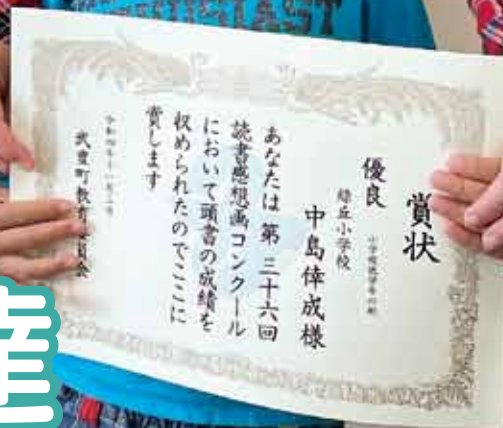 賞状
優良
緑丘小学校
中島倖成様
あなたは第三十六回
読書感想画コンクール
において頭書の成績を
収められたのでここに
賞します
武豊町教育委員会